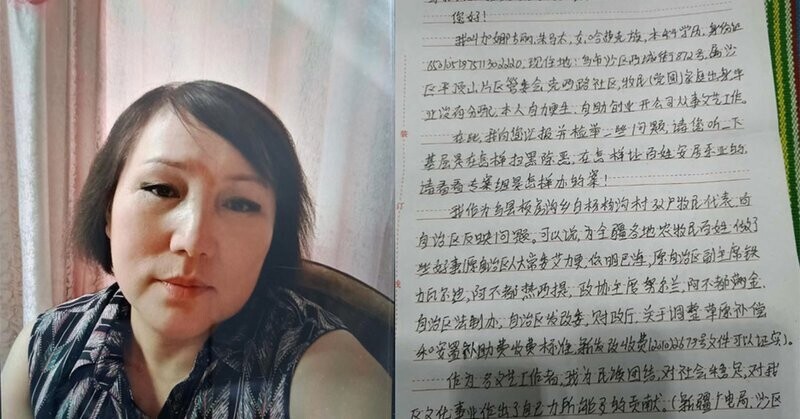 您好！
我叫加娜古丽.朱马太，女，哈萨克族，本科学历，身份证
现住地：乌市沙区西城街872号，属沙
区平顶山片区管委会克西路社区，牧民（党团）家庭出身，毕
业没有分配，本人自力更生、自助创业开公司从事文艺工作。
在此，我向您汇报并检举一些问题，请您听一下
基层是在怎样扫黑除恶，在怎样让百姓安居乐业的，
请看看专案组是怎样办的案！
我作为乌县板房沟乡白杨树沟村32户牧民代表，向
自治区反映问题。可以说，为全疆各地农牧民百姓，做了
些好事（原自治区人大常务艾力更.依明巴海，原自治区副主席铁
力瓦尔迪，阿不都热西提，政协主席努尔兰.阿不都满金，
自治区法制办，自治区发改委，财政厅：关于调整草原补偿
和安置补助费收费标准，新发改收费〔2010〕2679号文件可以证实）。
作为一名文艺工作者，我为民族团结，对社会稳定，对我
区文化事业作出了自己力所能及的贡献。（新疆广电局，沙区
装
订
线